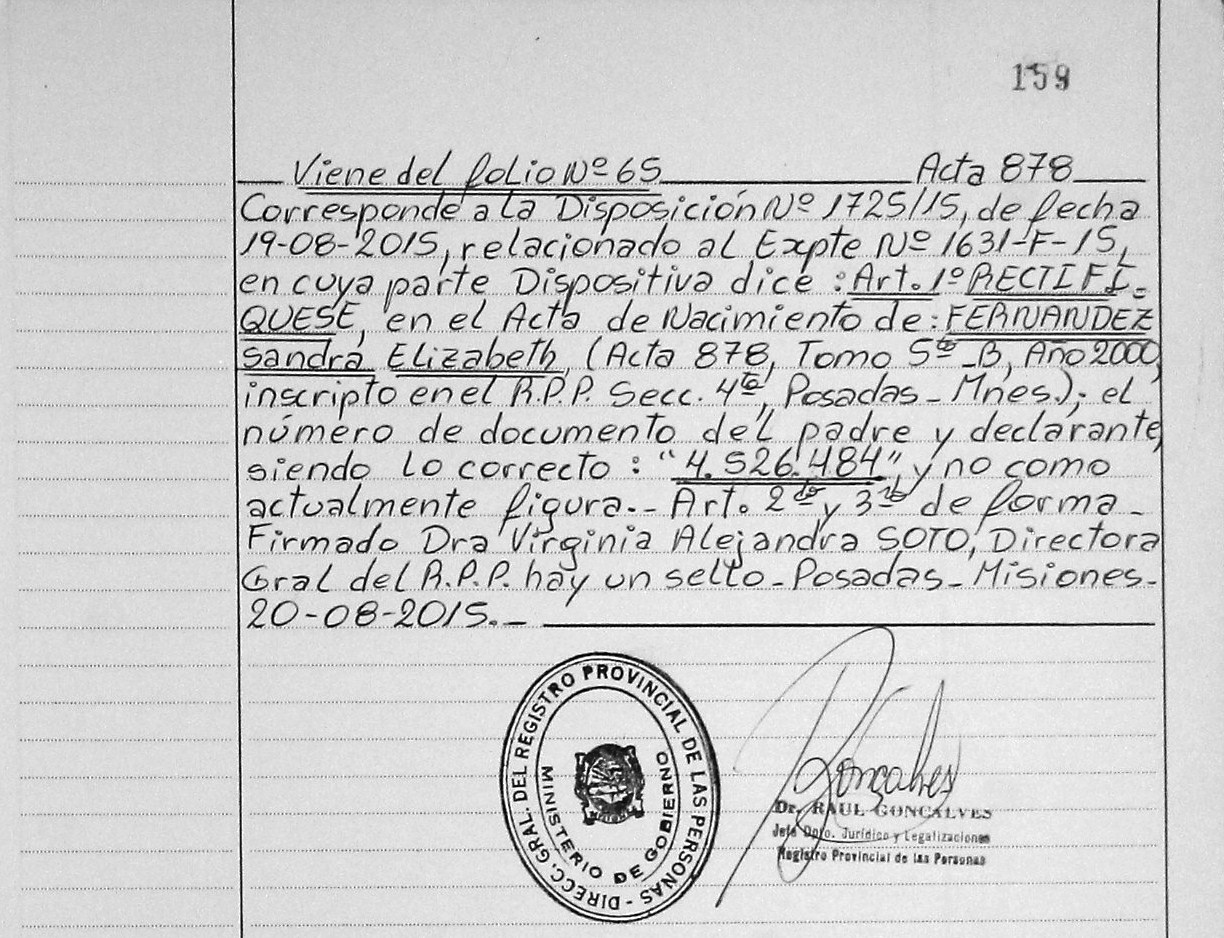 159
Viene del folio Nº 65 Acta 878
Corresponde a la Disposición Nº 1725/15, de fecha
19-08-2015, relacionado al Expte Nº 1631-F-15,
en cuya parte Dispositiva dice : Art. 1º RECTIFÍ-
QUESE, en el Acta de Nacimiento de: FERNANDEZ
Sandra Elizabeth, (Acta 878, Tomo 5to _B, Año 2000,
inscripto en el R.P.P. Secc. 4ta, Posadas_ Mnes.); el
número de documento del padre y declarante,
siendo lo correcto : "4.526.484" y no como
actualmente figura._ Art. 2do y 3ro de forma_
Firmado Dra Virginia Alejandra SOTO, Directora
Gral del R.P.P. hay un sello_ Posadas_ Misiones_
20-08-2015._
DIRECC. GRAL. DEL REGISTRO PROVINCIAL DE LAS PERSONAS -
MINISTERIO DE GOBIERNO
MISIONES
Goncalves
Dr. RAUL GONCALVES
Jefe Dpto. Jurídico y Legalizaciones
Registro Provincial de las Personas